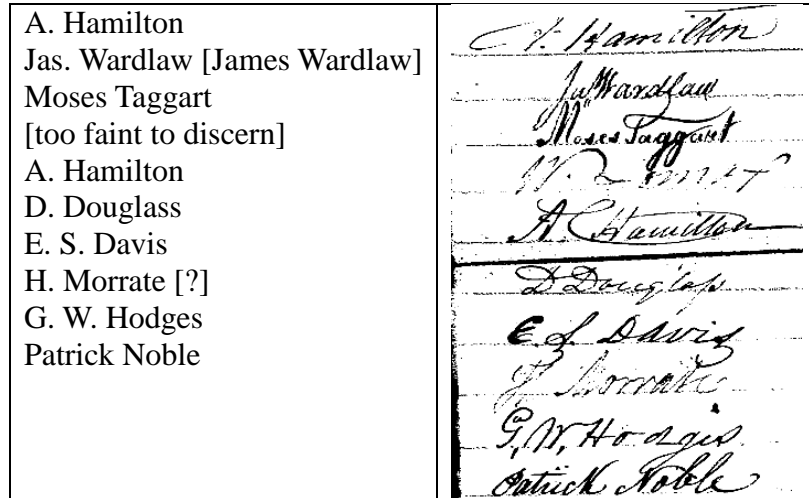 A. Hamilton
Jas. Wardlaw [James Wardlaw]
Moses Taggart
[too faint to discern]
A. Hamilton
D. Douglass
E. S. Davis
H. Morrate [?]
G. W. Hodges
Patrick Noble
A. Hamilton
Jas Wardlaw
Moses Taggart
W.
A. Hamilton
D Douglass
E. S. Davis
G. W. Hodges
Patrick Noble